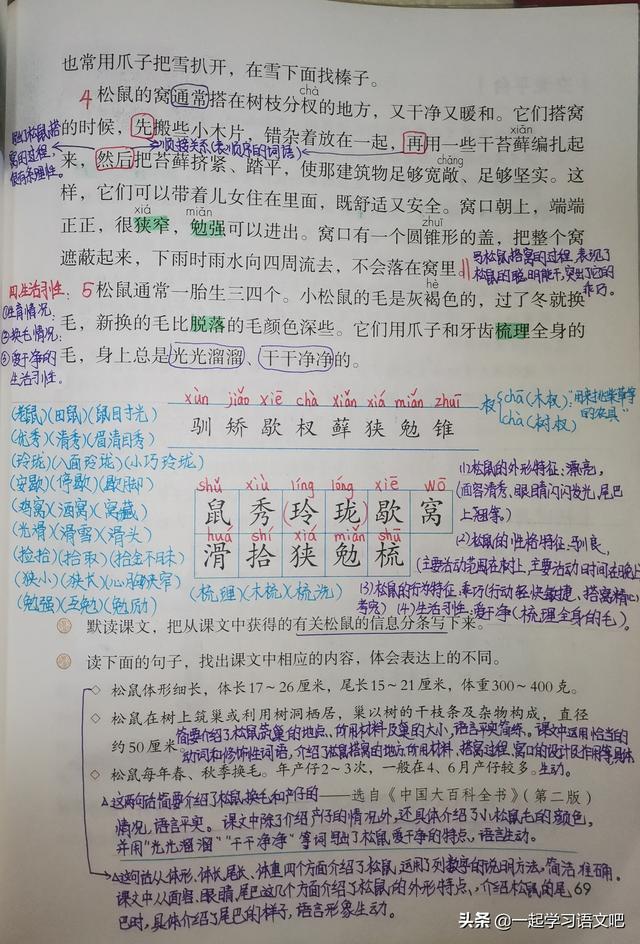 也常用爪子把雪扒开，在雪下面找榛子。
chà
4 松鼠的窝通常搭在树枝分杈的地方，又干净又暖和。它们搭窝
的时候，先搬些小木片，错杂着放在一起，再用一些干苔藓编扎起
xiǎn
写出了松鼠搭窝的过程，很有条理性。
顺接关系(表顺序的词语)
来，然后把苔藓挤紧、踏平，使那建筑物足够宽敞、足够坚实。这
chǎng
样，它们可以带着儿女住在里面，既舒适又安全。窝口朝上，端端
xiá miǎn zhuī
正正，很狭窄，勉强可以进出。窝口有一个圆锥形的盖，把整个窝
遮蔽起来，下雨时雨水向四周流去，不会落在窝里。
写松鼠搭窝的过程，表现了
松鼠的聪明能干，突出它的
乖巧。
hè
四.生活习性：
5 松鼠通常一胎生三四个。小松鼠的毛是灰褐色的，过了冬就换
①生育情况：
毛，新换的毛比脱落的毛颜色深些。它们用爪子和牙齿梳理全身的
②换毛情况：
毛，身上总是光光溜溜、干干净净的。
③爱干净的
生活习性。
xùn jiǎo xiē chà xiǎn xiá miǎn zhuī
驯 矫 歇 杈 藓 狭 勉 锥
杈 chā(木杈)"用来挑柴草等的农具"
chà(树杈)
(老鼠)(田鼠)(鼠目寸光)
(优秀)(清秀)(眉清目秀)
(玲珑)(八面玲珑)(小巧玲珑)
(安歇)(停歇)(歇脚)
(鸡窝)(酒窝)(窝藏)
(光滑)(滑雪)(滑头)
(捡拾)(拾取)(拾金不昧)
(狭小)(狭长)(心胸狭窄)
(勉强)(互勉)(勉励)
shǔ xiù líng lóng xiē wō
鼠 秀 玲 珑 歇 窝
huá shí xiá miǎn shū
滑 拾 狭 勉 梳
(梳理)(木梳)(梳洗)
(1)松鼠的外形特征：漂亮，
(面容清秀、眼睛闪闪发光、尾巴
上翘等。)
(2)松鼠的性格特征：驯良，
(主要活动范围在树上，主要活动时间在晚上)
(3)松鼠的行为特征：乖巧(行动轻快敏捷、搭窝精心
(4)生活习性：爱干净(梳理全身的毛)。
默读课文，把从课文中获得的有关松鼠的信息分条写下来。
读下面的句子，找出课文中相应的内容，体会表达上的不同。
◇ 松鼠体形细长，体长17～26厘米，尾长15～21厘米，体重300～400克。
◇ 松鼠在树上筑巢或利用树洞栖居，巢以树的干枝条及杂物构成，直径
约50厘米。
简要介绍了松鼠筑巢的地点、所用材料及巢的大小，语言平实简练。课文中运用恰当的
动词和修饰性词语，介绍了松鼠搭窝的地方、所用材料、搭窝过程、窝口的设计及作用等，具体
生动。
◇ 松鼠每年春、秋季换毛。年产仔2～3次，一般在4、6月产仔较多。
——选自《中国大百科全书》（第二版）
这两句话简要介绍了松鼠换毛和产仔的
情况，语言平实。课文中除了介绍产仔的情况外，还具体介绍了小松鼠毛的颜色，
并用"光光溜溜""干干净净"等词写出了松鼠爱干净的特点，语言生动。
这句话从体形、体长、尾长、体重四个方面介绍了松鼠，运用了列数字的说明方法，简洁、准确。
课文中从面容、眼睛、尾巴这几个方面介绍了松鼠的外形特点，介绍松鼠的尾
巴时，具体介绍了尾巴的样子，语言形象生动。
69
头条 @一起学习语文吧